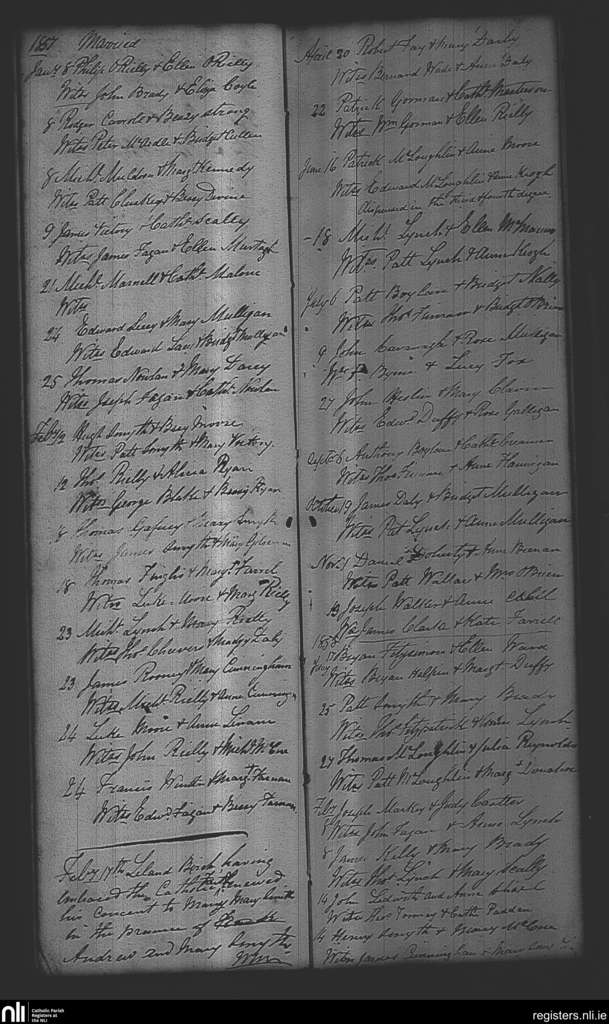 1857 Married
Jany 8 Philip O'Reilly & Ellen O'Reilly
Witns John Brady & Eliza Coyle
8 Rodger & Bessy Strong
Witns Peter McArdle & Bridget Cullen
8 Michl Muldoon & Margt Kennedy
Witns Patt Cluskey & Bessy Devine
9 James Victory & Cathe Scally
Witns James Fagan & Ellen Murtagh
21 Michl Marnell & Cathe Malone
Witns
24 Edward Levy & Mary Mulligan
Witns Edward & Bridgt Mulligan
25 Thomas Nowlan & Mary Darcy
Witns Joseph Fagan & Cathe Nowlan
Feby 12 Hugh Smyth & Bessy Moore
Witns Patt Smyth & Mary Victory
12 Thos Reilly & Maria Ryan
Witns George Blake & Bessy Ryan
18 Thomas Gafney & Mary Smyth
Witns James Smyth & Mary
18 Thomas Inglis & Margt Farrel
Witns Luke Moore & Margt Reilly
23 Michl Lynch & Mary Reilly
Witns Thos Cheevers & Margt Daly
23 James Rooney & Mary Cunningham
Witns Michl Reilly & Anne Cunningham
24 Luke Moore & Anne
Witns John Reilly & Michl McCue
24 Francis & Margt Farnan
Witns Edwd Fagan & Bessy Farnan
Feby 17th Leland Birch having
embraced the Catholic renewed
his consent to Mary Smith
in the presence of
Andrew and Mary Smyth
April 30 Robert Fay & Mary Daily
Witns Bernard Wade & Anne Daly
22 Patrick Gorman & Cathe Masterson
Witns Wm Gorman & Ellen Reilly
June 16 Patrick McLoughlin & Anne Moore
Witns Edward McLoughlin & Anne Keogh
dispensed in the third & fourth degree
18 Michl Lynch & Ellen
Witns Patt Lynch & Anne Keogh
July 6 Patt Boylan & Bridget Nally
Witns Thos & Bridgt O'Brien
9 John Cavanagh & Rose Mulligan
Byrne & Lucy Fox
27 John Heslin & Mary
Witns Edwd Duffy & Rose Galligan
Septr 6 Anthony Boylan & Cathe
Witns Thos & Anne Flannigan
October 19 James Daly & Bridget Mulligan
Witns Pat Lynch & Anne Mulligan
Novr 1 Daniel Doherty & Anne Brenan
Witns Patt Wallace & Mrs O'Brien
19 Joseph Walker & Anne
James Clarke & Kate Farrell
1858
Jany 17 Bryan Fitzsimon & Ellen Ward
Witns Bryan Halpin & Margt Duffy
25 Patt Smyth & Mary Brady
Witns Thos Fitzpatrick & Lynch
27 Thomas McLoughlin & Julia Reynolds
Witns Patt McLoughlin & Margt Donahoe
Feby Joseph Markey & Judy Carther
8 Witns John Fagan & Anne Lynch
8 James Kelly & Mary Brady
Witns Thos Lynch & Mary Scally
14 John Ledwith and Anne
Witns Thos Toomey & Cathe Padden
14 Henry Smyth & McCue
Witns James Bermingham & Mary
nli
Catholic Parish
Registers at
the NLI
registers.nli.ie